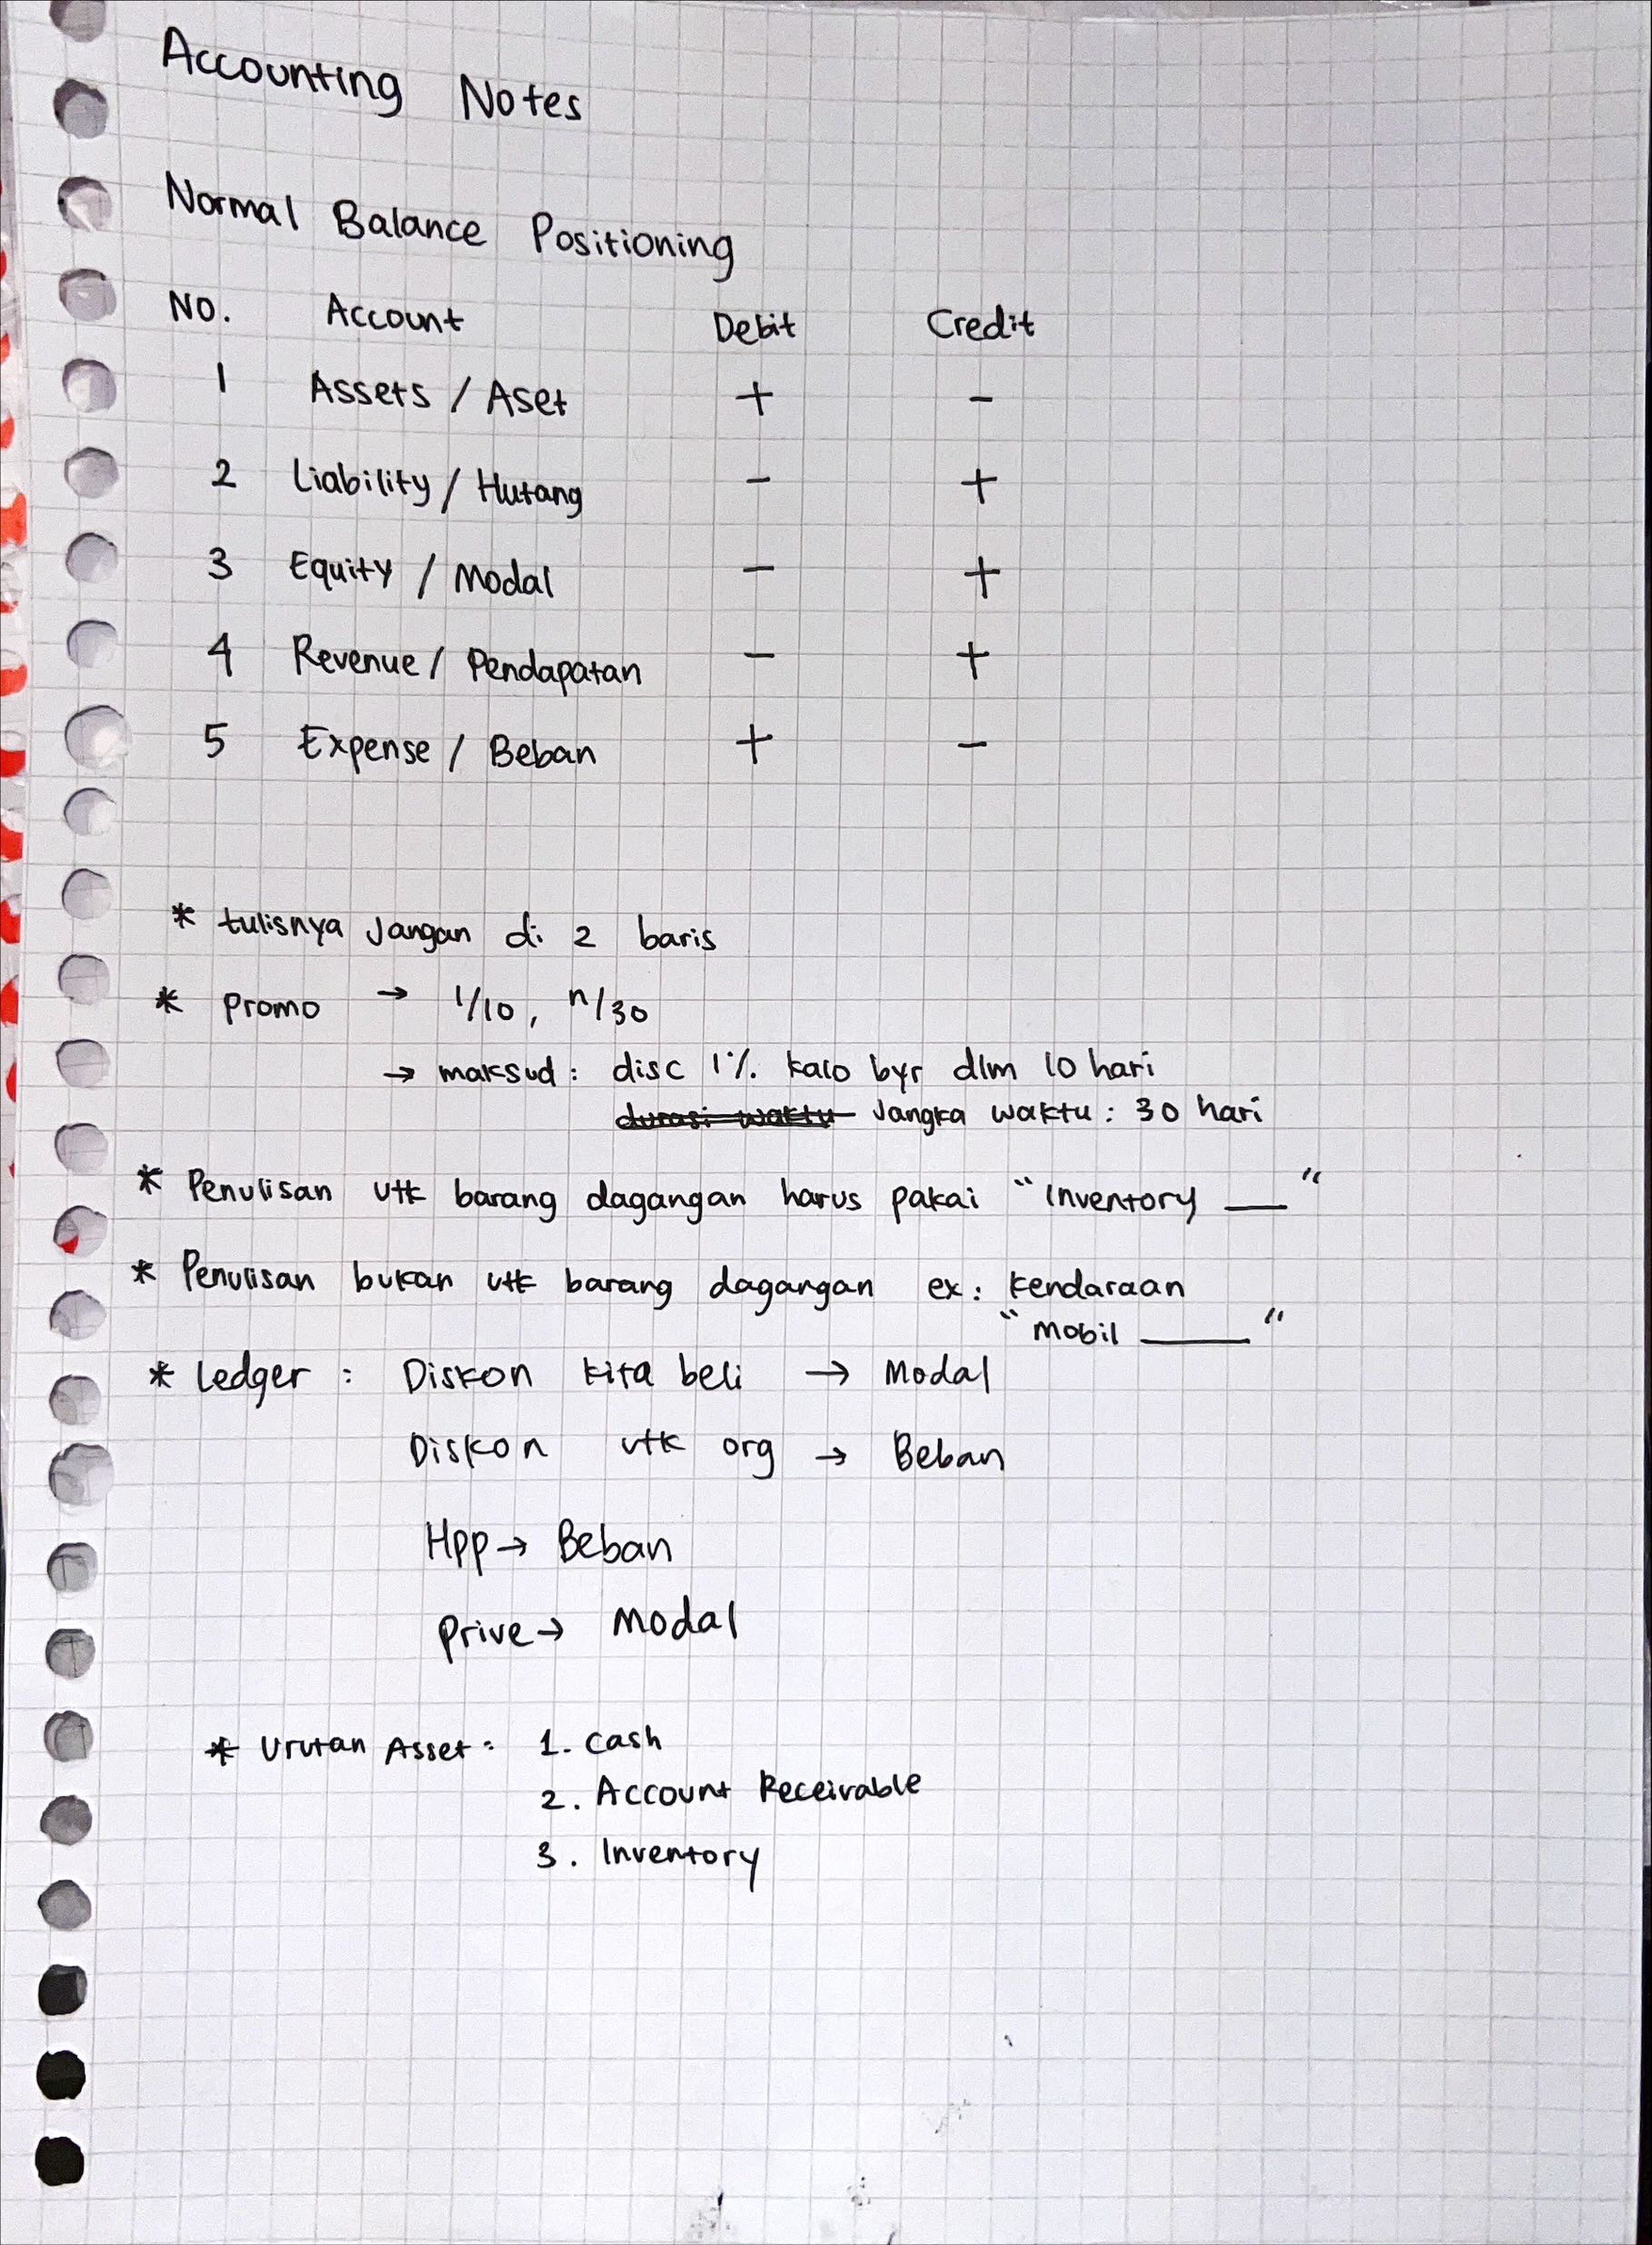 Accounting Notes
Normal Balance Positioning
NO. Account Debit Credit
1 Assets / Aset + -
2 Liability / Hutang - +
3 Equity / Modal - +
4 Revenue / Pendapatan - +
5 Expense / Beban + -
* tulisnya Jangan di 2 baris
* Promo → 1/10, n/30
→ maksud : disc 1% kalo byr dlm 10 hari
durasi waktu Jangka waktu : 30 hari
* Penulisan utk barang dagangan harus pakai "Inventory ___"
* Penulisan bukan utk barang dagangan ex : kendaraan
"Mobil _____"
* Ledger : Diskon kita beli → Modal
Diskon utk org → Beban
Hpp → Beban
Prive → Modal
* Urutan Asset : 1. Cash
2. Account Receivable
3. Inventory